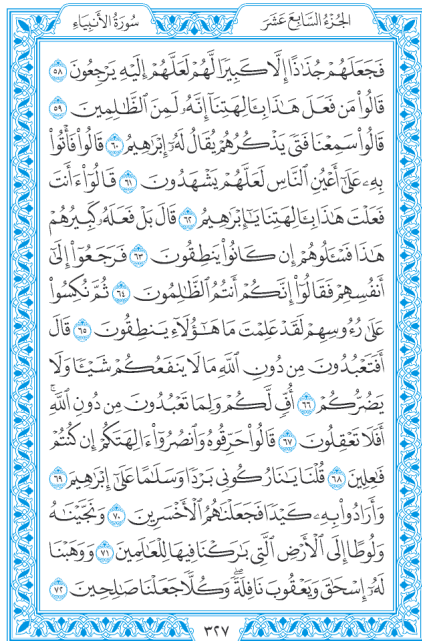 الجُزْءُ السَّابِعَ عَشَرَ
سُورَةُ الأَنبِيَاءِ
فَجَعَلَهُمْ جُذَٰذًا إِلَّا كَبِيرًا لَّهُمْ لَعَلَّهُمْ إِلَيْهِ يَرْجِعُونَ ٥٨
قَالُوا۟ مَن فَعَلَ هَٰذَا بِـَٔالِهَتِنَآ إِنَّهُۥ لَمِنَ ٱلظَّٰلِمِينَ ٥٩
قَالُوا۟ سَمِعْنَا فَتًى يَذْكُرُهُمْ يُقَالُ لَهُۥٓ إِبْرَٰهِيمُ ٦٠ قَالُوا۟ فَأْتُوا۟
بِهِۦ عَلَىٰٓ أَعْيُنِ ٱلنَّاسِ لَعَلَّهُمْ يَشْهَدُونَ ٦١ قَالُوٓا۟ ءَأَنتَ
فَعَلْتَ هَٰذَا بِـَٔالِهَتِنَا يَٰٓإِبْرَٰهِيمُ ٦٢ قَالَ بَلْ فَعَلَهُۥ كَبِيرُهُمْ
هَٰذَا فَسْـَٔلُوهُمْ إِن كَانُوا۟ يَنطِقُونَ ٦٣ فَرَجَعُوٓا۟ إِلَىٰٓ
أَنفُسِهِمْ فَقَالُوٓا۟ إِنَّكُمْ أَنتُمُ ٱلظَّٰلِمُونَ ٦٤ ثُمَّ نُكِسُوا۟
عَلَىٰ رُءُوسِهِمْ لَقَدْ عَلِمْتَ مَا هَٰٓؤُلَآءِ يَنطِقُونَ ٦٥ قَالَ
أَفَتَعْبُدُونَ مِن دُونِ ٱللَّهِ مَا لَا يَنفَعُكُمْ شَيْـًٔا وَلَا
يَضُرُّكُمْ ٦٦ أُفٍّ لَّكُمْ وَلِمَا تَعْبُدُونَ مِن دُونِ ٱللَّهِ ۖ
أَفَلَا تَعْقِلُونَ ٦٧ قَالُوا۟ حَرِّقُوهُ وَٱنصُرُوٓا۟ ءَالِهَتَكُمْ إِن كُنتُمْ
فَٰعِلِينَ ٦٨ قُلْنَا يَٰنَارُ كُونِى بَرْدًا وَسَلَٰمًا عَلَىٰٓ إِبْرَٰهِيمَ ٦٩
وَأَرَادُوا۟ بِهِۦ كَيْدًا فَجَعَلْنَٰهُمُ ٱلْأَخْسَرِينَ ٧٠ وَنَجَّيْنَٰهُ
وَلُوطًا إِلَى ٱلْأَرْضِ ٱلَّتِى بَٰرَكْنَا فِيهَا لِلْعَٰلَمِينَ ٧١ وَوَهَبْنَا
لَهُۥٓ إِسْحَٰقَ وَيَعْقُوبَ نَافِلَةً ۖ وَكُلًّا جَعَلْنَا صَٰلِحِينَ ٧٢
٣٢٧